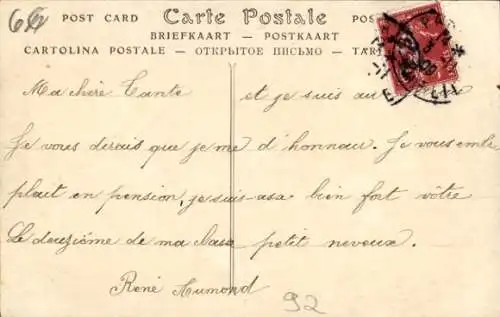 66
POST CARD Carte Postale POS
BRIEFKAART — POSTKAART
CARTOLINA POSTALE — ОТКРЫТОЕ ПИСЬМО — TAR
Ma chère Tante
Je vous dirais que je me
plait en pension, je suis asa
Le deuzième de ma Clase
René Aumond
et je suis au
d'honneur. Je vous embr
bien fort vôtre
petit neveux.
92